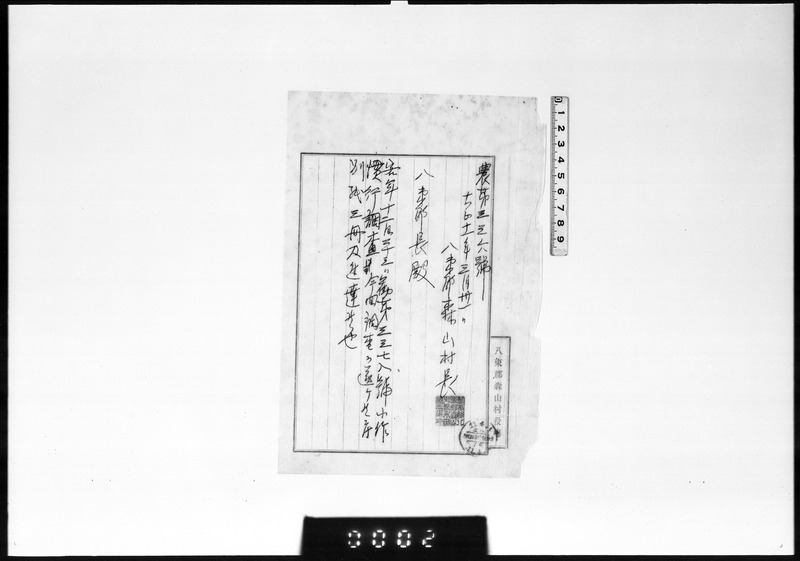 農第三三六號
大正十一年三月卅一日
八束郡森山村長
八束郡長殿
客年十二月二十三日勸第三三七八號小作
慣行調査 今回調査 遂ケ
別紙三冊及進達候也
八束郡森山村役
0 1 2 3 4 5 6 7 8 9
0002